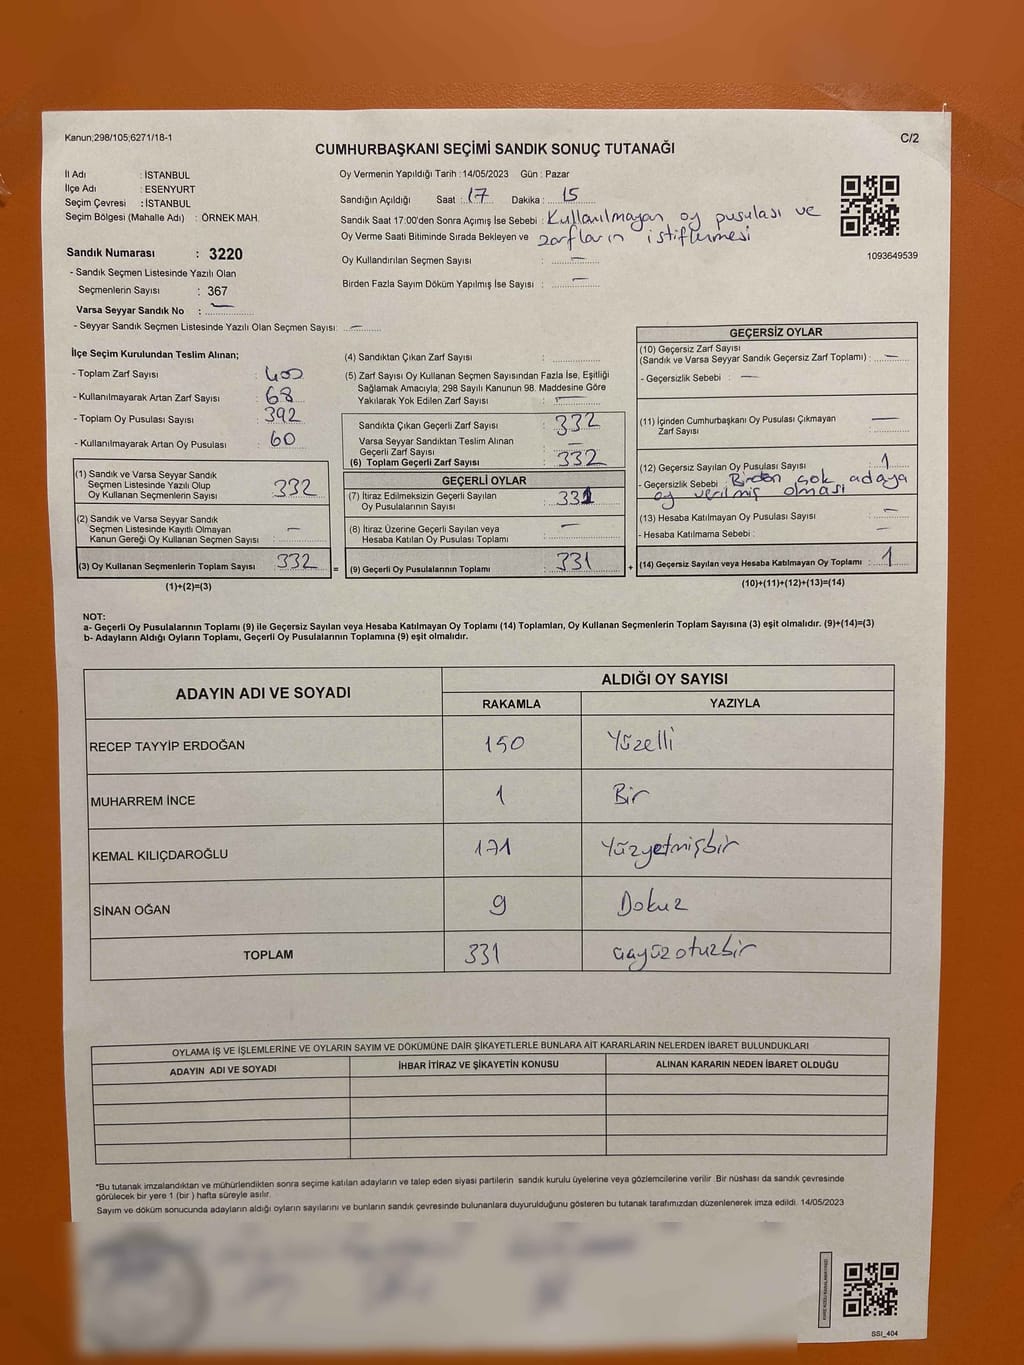 Kanun;298/105;6271/18-1
C/2
CUMHURBAŞKANI SEÇİMİ SANDIK SONUÇ TUTANAĞI
İl Adı : İSTANBUL
İlçe Adı : ESENYURT
Seçim Çevresi : İSTANBUL
Seçim Bölgesi (Mahalle Adı) : ÖRNEK MAH.
Oy Vermenin Yapıldığı Tarih : 14/05/2023 Gün : Pazar
Sandığın Açıldığı Saat : 17 Dakika : 15
Sandık Saat 17:00'den Sonra Açımış İse Sebebi : Kullanılmayan oy pusulası ve
zarfların istiflenmesi
Oy Verme Saati Bitiminde Sırada Bekleyen ve
Oy Kullandırılan Seçmen Sayısı : —
Birden Fazla Sayım Döküm Yapılmış İse Sayısı : —
1093649539
Sandık Numarası : 3220
- Sandık Seçmen Listesinde Yazılı Olan
Seçmenlerin Sayısı : 367
Varsa Seyyar Sandık No : —
- Seyyar Sandık Seçmen Listesinde Yazılı Olan Seçmen Sayısı: —
İlçe Seçim Kurulundan Teslim Alınan;
- Toplam Zarf Sayısı : 400
- Kullanılmayarak Artan Zarf Sayısı : 68
- Toplam Oy Pusulası Sayısı : 392
- Kullanılmayarak Artan Oy Pusulası : 60
(1) Sandık ve Varsa Seyyar Sandık
Seçmen Listesinde Yazılı Olup
Oy Kullanan Seçmenlerin Sayısı : 332
(2) Sandık ve Varsa Seyyar Sandık
Seçmen Listesinde Kayıtlı Olmayan
Kanun Gereği Oy Kullanan Seçmen Sayısı : —
(3) Oy Kullanan Seçmenlerin Toplam Sayısı : 332
(1)+(2)=(3)
=
(4) Sandıktan Çıkan Zarf Sayısı :
(5) Zarf Sayısı Oy Kullanan Seçmen Sayısından Fazla İse, Eşitliği
Sağlamak Amacıyla, 298 Sayılı Kanunun 98. Maddesine Göre
Yakılarak Yok Edilen Zarf Sayısı : —
Sandıkta Çıkan Geçerli Zarf Sayısı : 332
Varsa Seyyar Sandıktan Teslim Alınan
Geçerli Zarf Sayısı : —
(6) Toplam Geçerli Zarf Sayısı : 332
GEÇERLİ OYLAR
(7) İtiraz Edilmeksizin Geçerli Sayılan
Oy Pusulalarının Sayısı : 331
(8) İtiraz Üzerine Geçerli Sayılan veya
Hesaba Katılan Oy Pusulası Toplamı : —
(9) Geçerli Oy Pusulalarının Toplamı : 331
+
GEÇERSİZ OYLAR
(10) Geçersiz Zarf Sayısı
(Sandık ve Varsa Seyyar Sandık Geçersiz Zarf Toplamı) : —
- Geçersizlik Sebebi : —
(11) İçinden Cumhurbaşkanı Oy Pusulası Çıkmayan
Zarf Sayısı : —
(12) Geçersiz Sayılan Oy Pusulası Sayısı : 1
- Geçersizlik Sebebi : Birden çok adaya
oy verilmiş olması
(13) Hesaba Katılmayan Oy Pusulası Sayısı : —
- Hesaba Katılmama Sebebi : —
(14) Geçersiz Sayılan veya Hesaba Katılmayan Oy Toplamı : 1
(10)+(11)+(12)+(13)=(14)
NOT:
a- Geçerli Oy Pusulalarının Toplamı (9) ile Geçersiz Sayılan veya Hesaba Katılmayan Oy Toplamı (14) Toplamları, Oy Kullanan Seçmenlerin Toplam Sayısına (3) eşit olmalıdır. (9)+(14)=(3)
b- Adayların Aldığı Oyların Toplamı, Geçerli Oy Pusulalarının Toplamına (9) eşit olmalıdır.
ADAYIN ADI VE SOYADI
ALDIĞI OY SAYISI
RAKAMLA YAZIYLA
RECEP TAYYİP ERDOĞAN 150 Yüzelli
MUHARREM İNCE 1 Bir
KEMAL KILIÇDAROĞLU 171 Yüzyetmişbir
SİNAN OĞAN 9 Dokuz
TOPLAM 331 üçyüzotuzbir
OYLAMA İŞ VE İŞLEMLERİNE VE OYLARIN SAYIM VE DÖKÜMÜNE DAİR ŞİKAYETLERLE BUNLARA AİT KARARLARIN NELERDEN İBARET BULUNDUKLARI
ADAYIN ADI VE SOYADI İHBAR İTİRAZ VE ŞİKAYETİN KONUSU ALINAN KARARIN NEDEN İBARET OLDUĞU
*Bu tutanak imzalandıktan ve mühürlendikten sonra seçime katılan adayların ve talep eden siyasi partilerin sandık kurulu üyelerine veya gözlemcilerine verilir. Bir nüshası da sandık çevresinde
görülecek bir yere 1 (bir) hafta süreyle asılır.
Sayım ve döküm sonucunda adayların aldığı oyların sayılarını ve bunların sandık çevresinde bulunanlara duyurulduğunu gösteren bu tutanak tarafımızdan düzenlenerek imza edildi. 14/05/2023
SSI_404